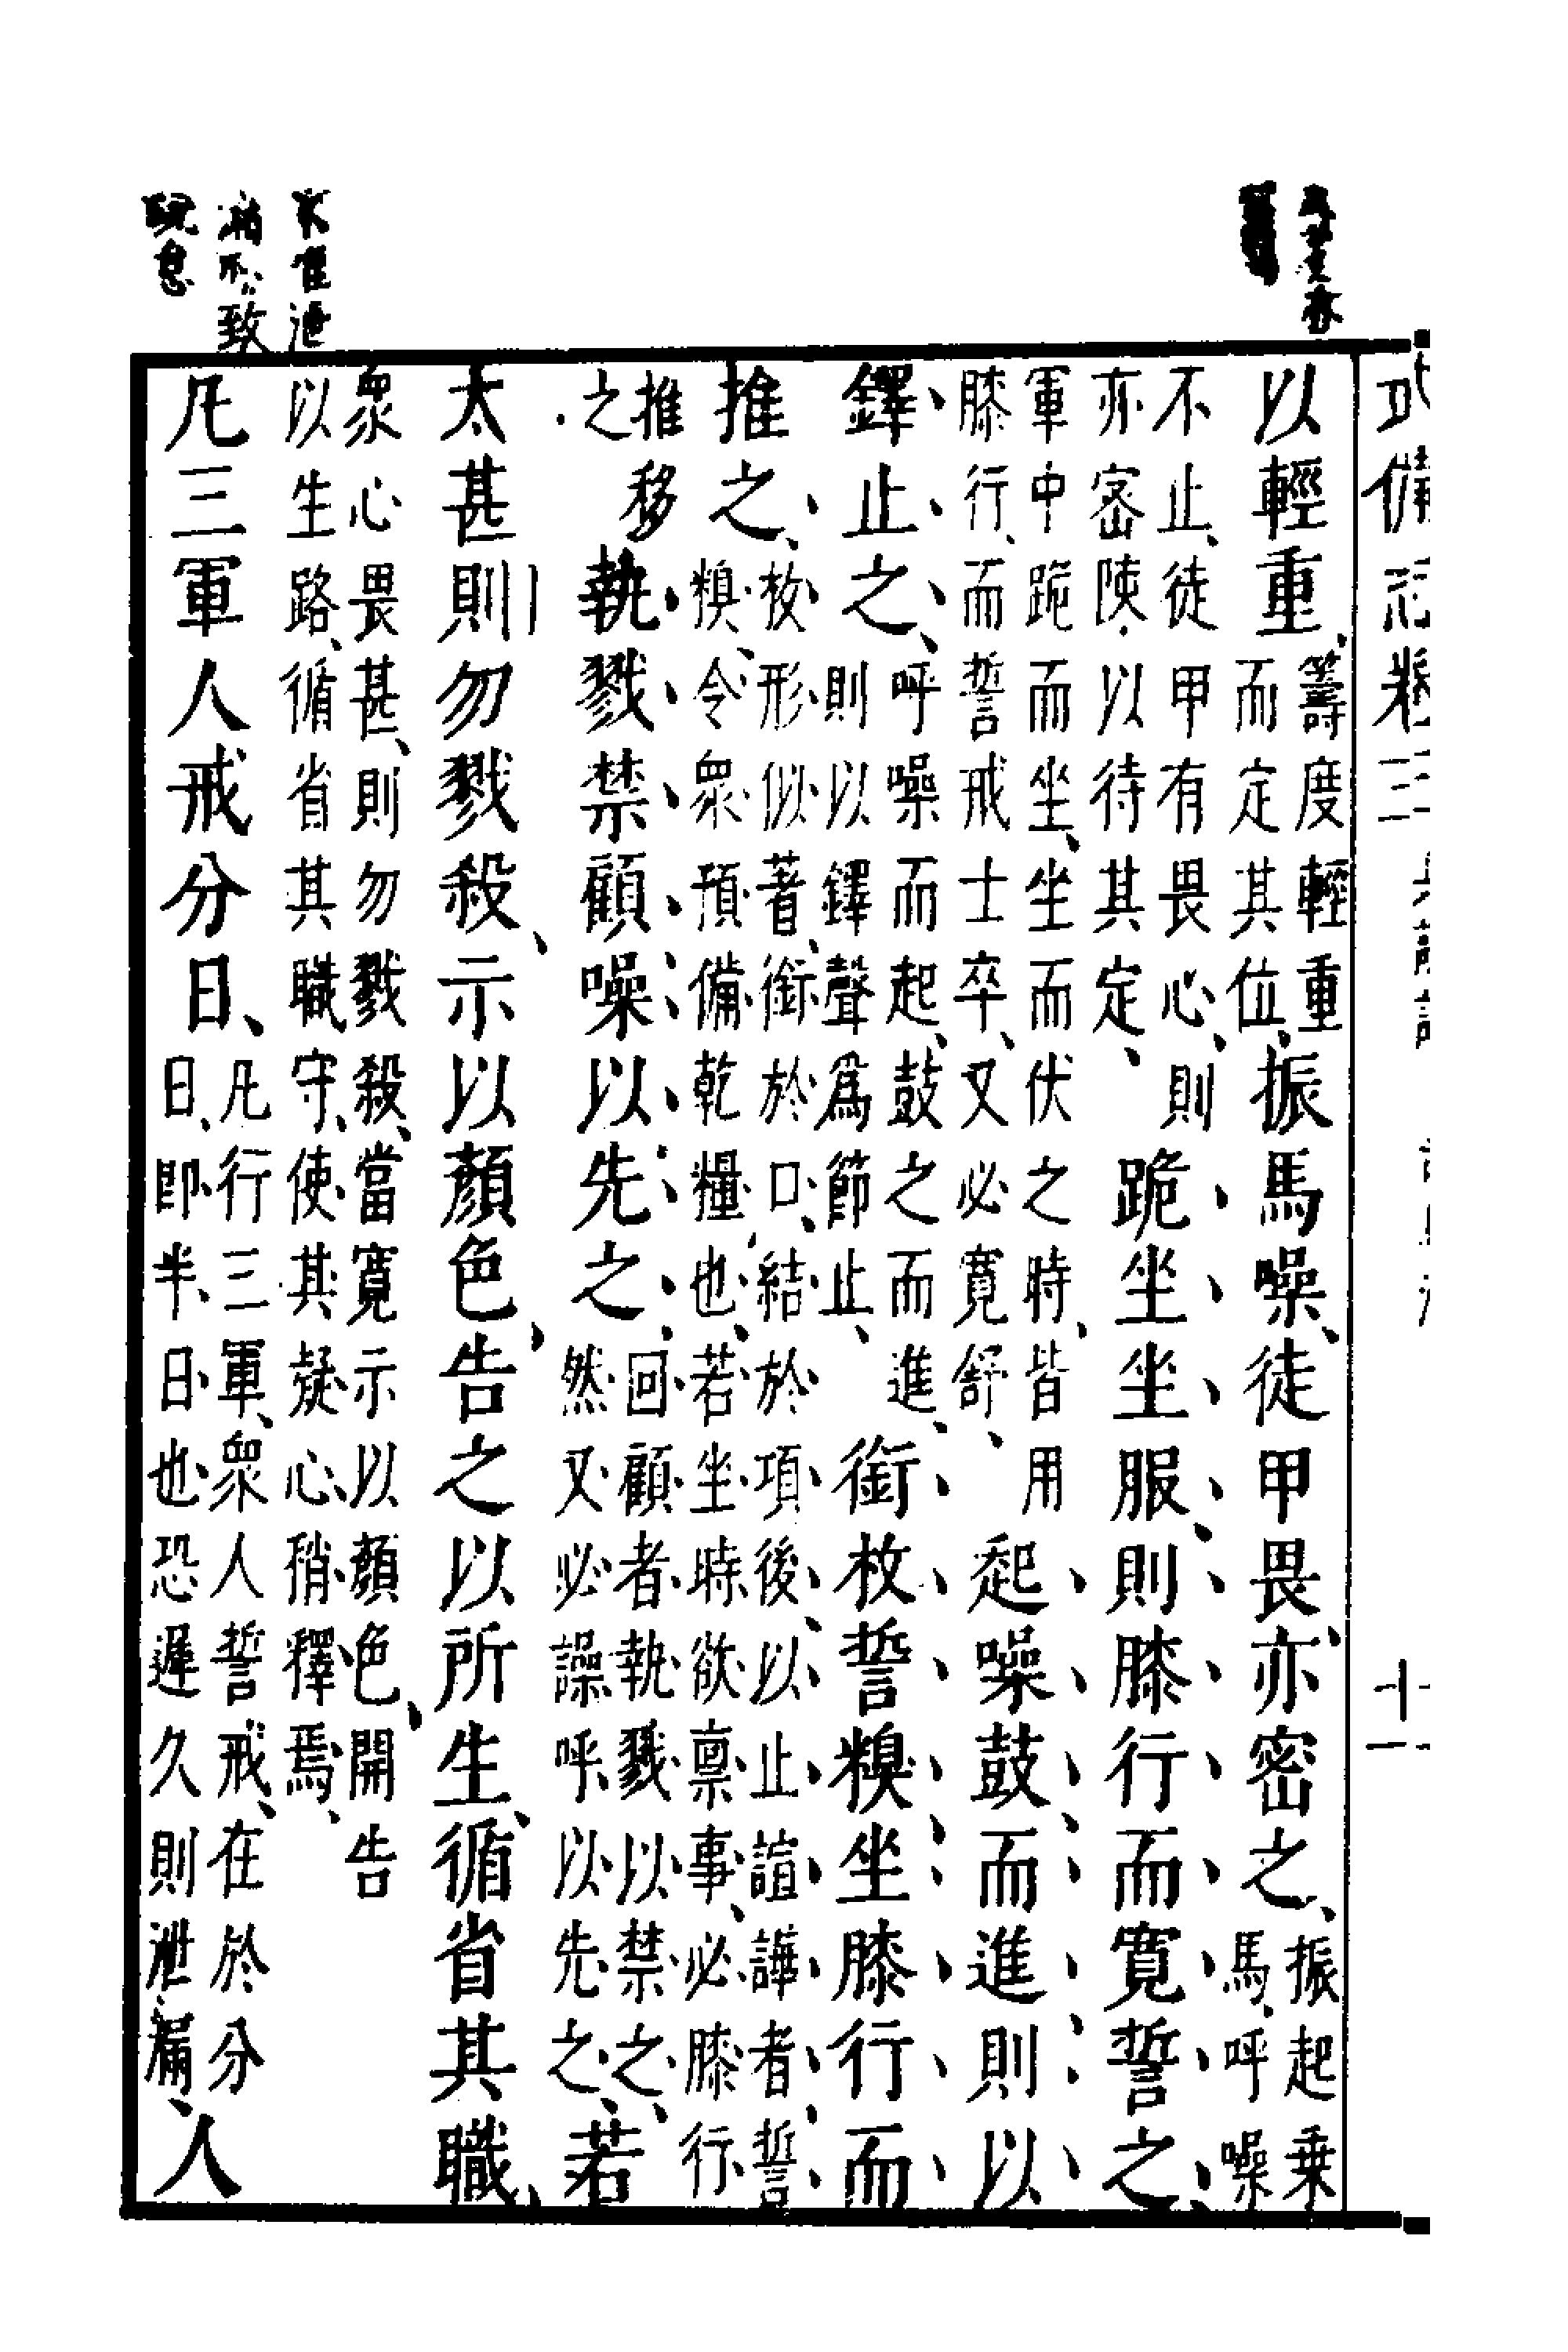 備志卷三
十一
以輕重、籌度輕重而定其位、振馬噪、徒甲畏、亦密之、振起乗馬、呼噪
不止、徒甲有畏心、則亦密陳、以待其定、跪坐坐服、則膝行而寬誓之、
軍中跪而坐、坐而伏之時、皆用膝行、而誓戒士卒、又必寬舒、起噪鼓而進則以
鐸止之、呼噪而起、鼓之而進、則以鐸聲爲節止、銜枚誓糗坐膝行而
推之、枚形似著、銜於口、結於項後、以止諠譁者、誓糗、令衆預備乾糧也、若坐時欲禀事、必膝行
推移之執戮禁顧噪以先之、回顧者執戮以禁之、然又必譟呼以先之、若
太甚則勿戮殺、示以顏色、告之以所生、循省其職、
衆心畏甚、則勿戮殺、當寬示以顏色、開告以生路、循省其職守、使其疑心稍釋焉、
凡三軍人戒分日、凡行三軍、衆人誓戒、在於分日、即半日也恐遲久則泄漏、人
惟泄
漏不致
怠